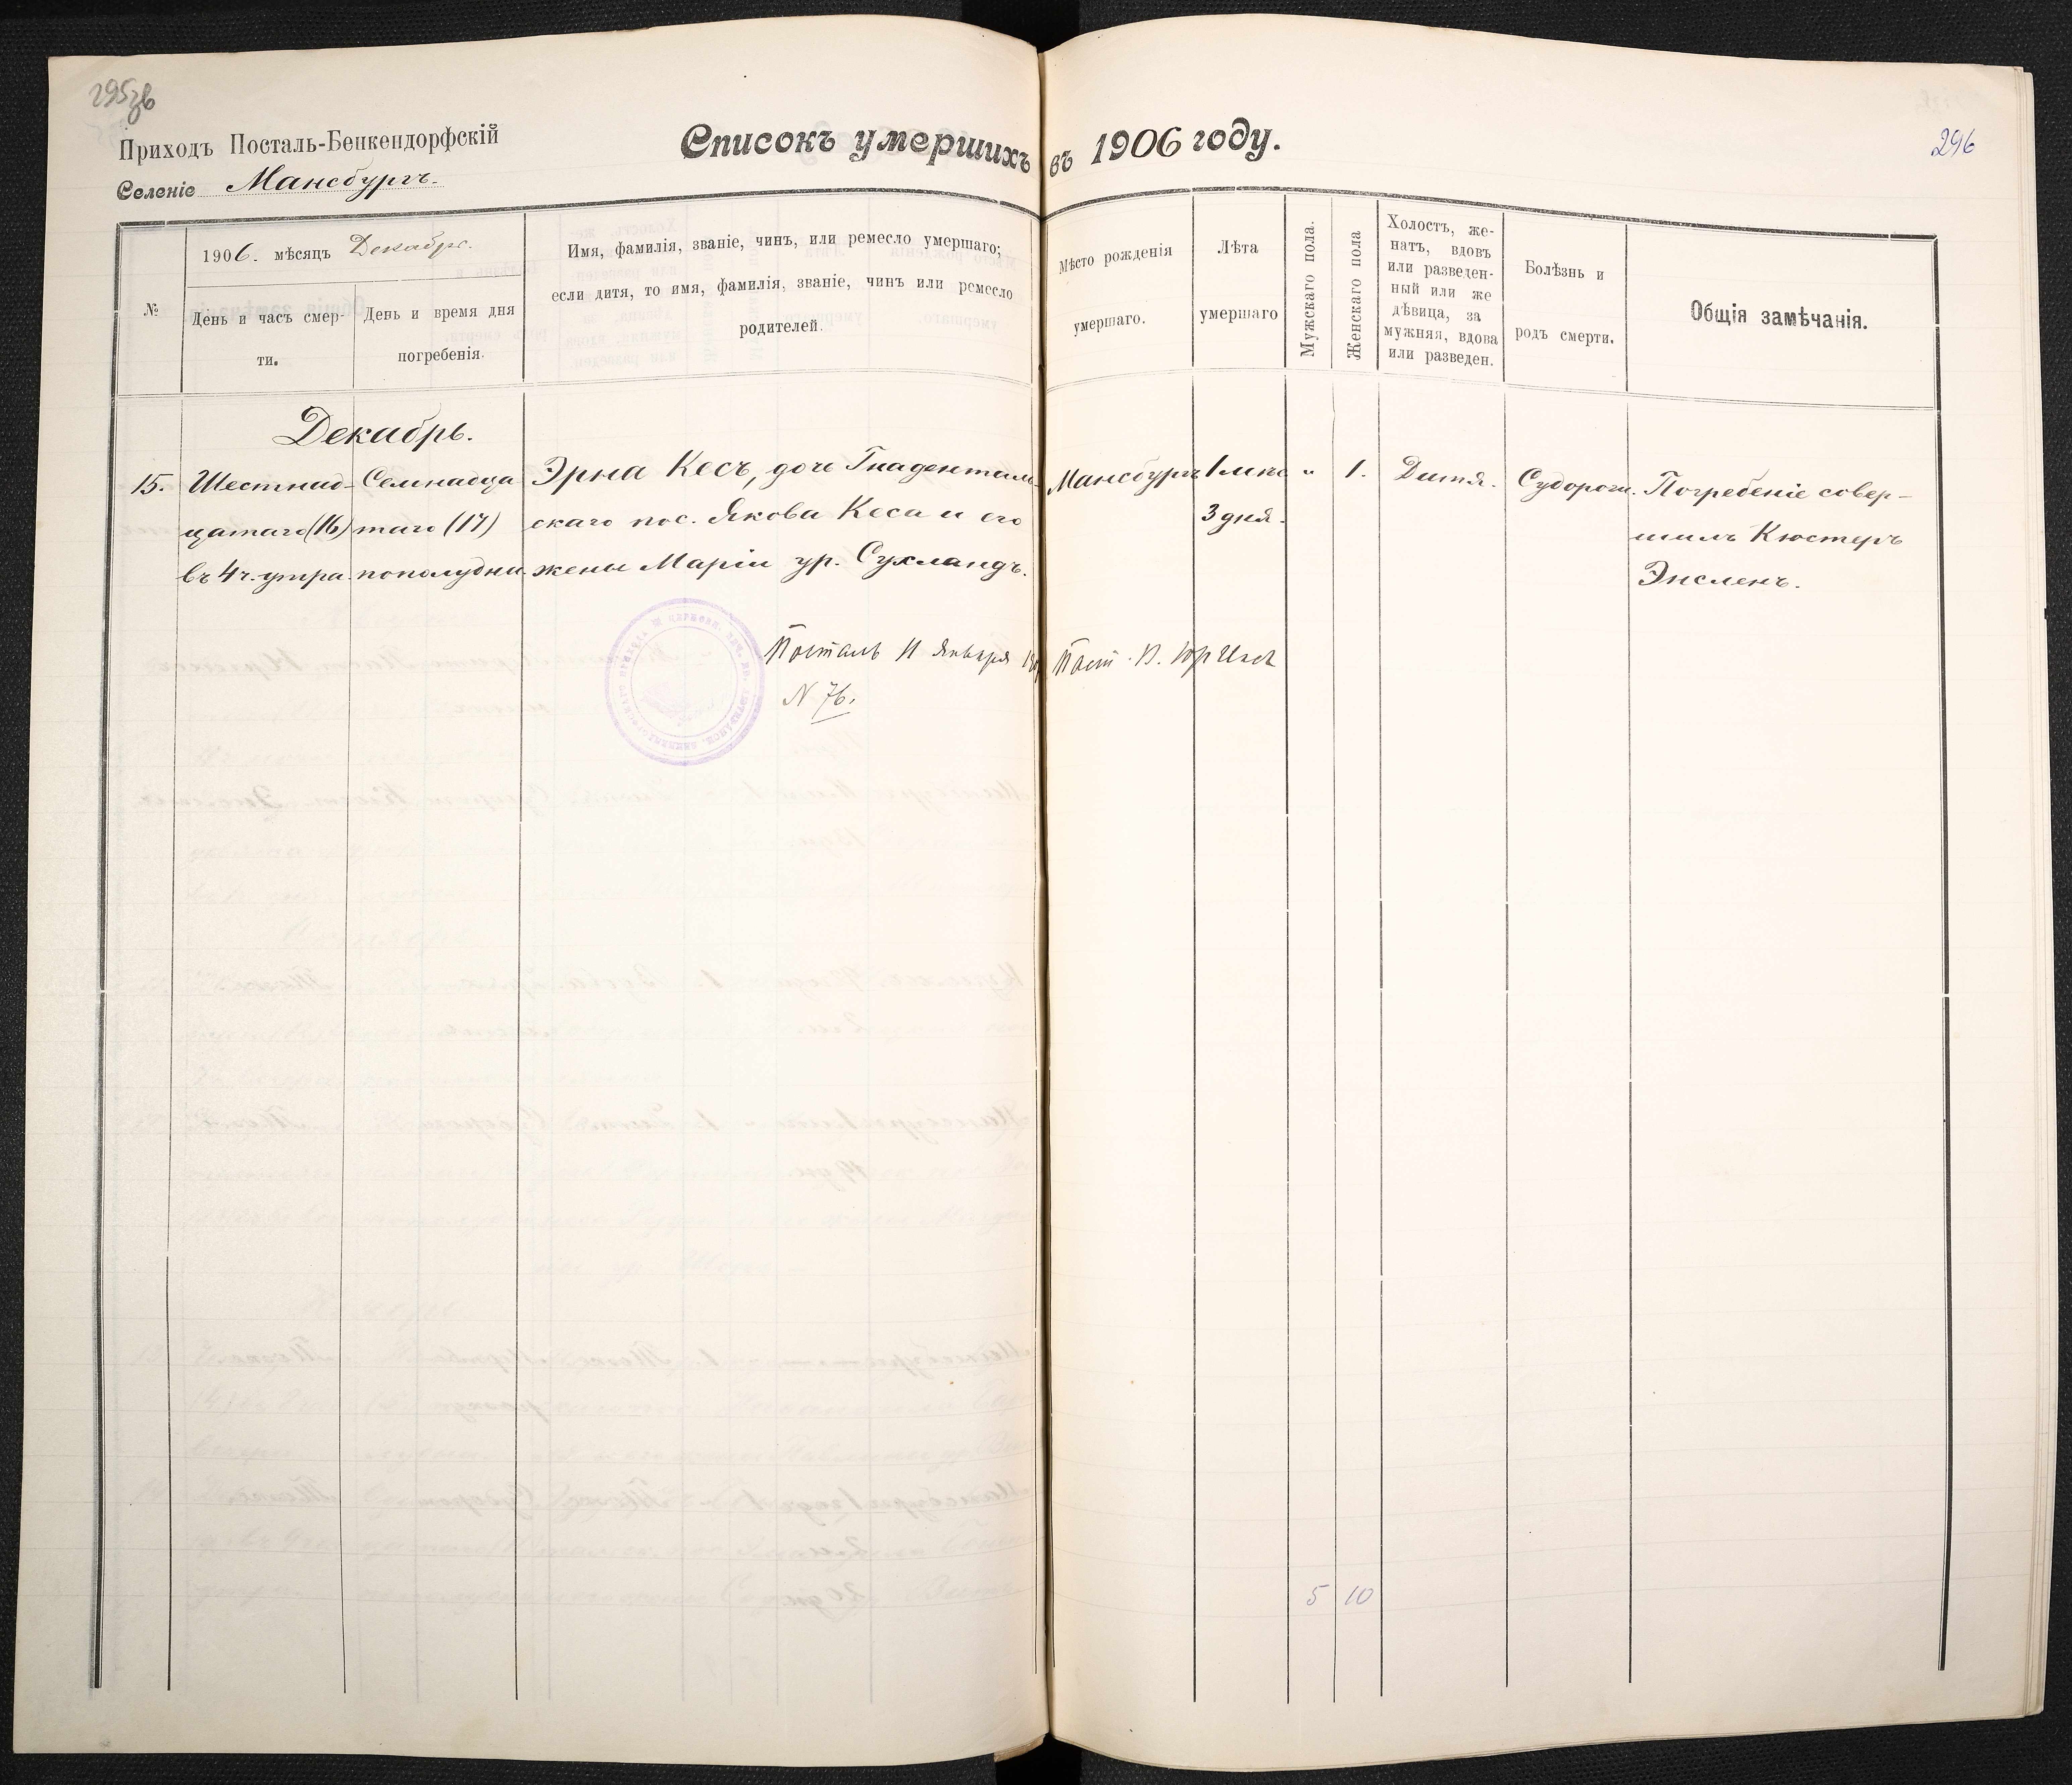 295зв
Приходъ Посталь-Бенкендорфскій
Селеніе Мансбургъ.
Списокъ умершихъ въ 1906 году.
296
№
1906. мѣсяцъ Декабрь.
День и часъ смер-
ти.
День и время дня
погребенія.
Имя, фамилія, званіе, чинъ, или ремесло умершаго;
если дитя, то имя, фамилія, званіе, чинъ или ремесло
родителей.
Мѣсто рожденія
умершаго.
Лѣта
умершаго
Мужскаго пола.
Женскаго пола
Холостъ, же-
натъ, вдовъ
или разведен-
ный или же
дѣвица, за
мужняя, вдова
или разведен.
Болѣзнь и
родъ смерти.
Общія замѣчанія.
Декабрь.
15.
Шестнад-
цатаго (16)
въ 4 ч. утра.
Семнадца
таго (17)
пополудни.
Эрна Кесъ, дочь Гнаденталь-
скаго пос. Якова Кеса и его
жены Маріи ур. Сухландъ.
Мансбургъ
1 мѣс
3 дня.
"
1.
Дитя.
Судороги.
Погребеніе совер-
шилъ Кюстеръ
Энсленъ.
Посталь 11 Января 1907 Паст. В.
N 76.
5 10